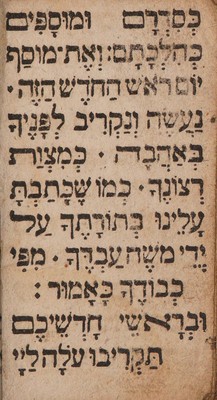 כְּסִדְרָם וּמוּסָפִים
כְּהִלְכָתָם: וְאֶת־מוּסַף
יוֹם רֹאשׁ הַחֹדֶשׁ הַזֶּה·
נַעֲשֶׂה וְנַקְרִיב לְפָנֶיךָ
בְּאַהֲבָה· כְּמִצְוַת
רְצוֹנֶךָ· כְּמוֹ שֶׁכָּתַבְתָּ
עָלֵינוּ בְּתוֹרָתֶךָ עַל
יְדֵי מֹשֶׁה עַבְדֶּךָ· מִפִּי
כְבוֹדֶךָ כָּאָמוּר:
וּבְרָאשֵׁי חָדְשֵׁיכֶם
תַּקְרִיבוּ עֹלָה לַיְיָ